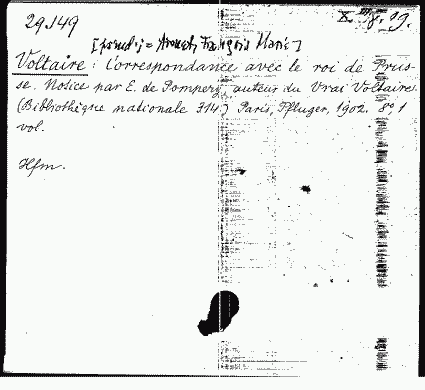 29.149
X. III. 8. 19.
[pseud.; = Arouet, François Marie]
Voltaire : Correspondance avec le roi de Prus-
se. Notice par E. de Pompery, auteur du Vrai Voltaire.
(Bibliothèque nationale 314.) Paris, Pfluger, 1902. 8° 1
vol.
Hfm.